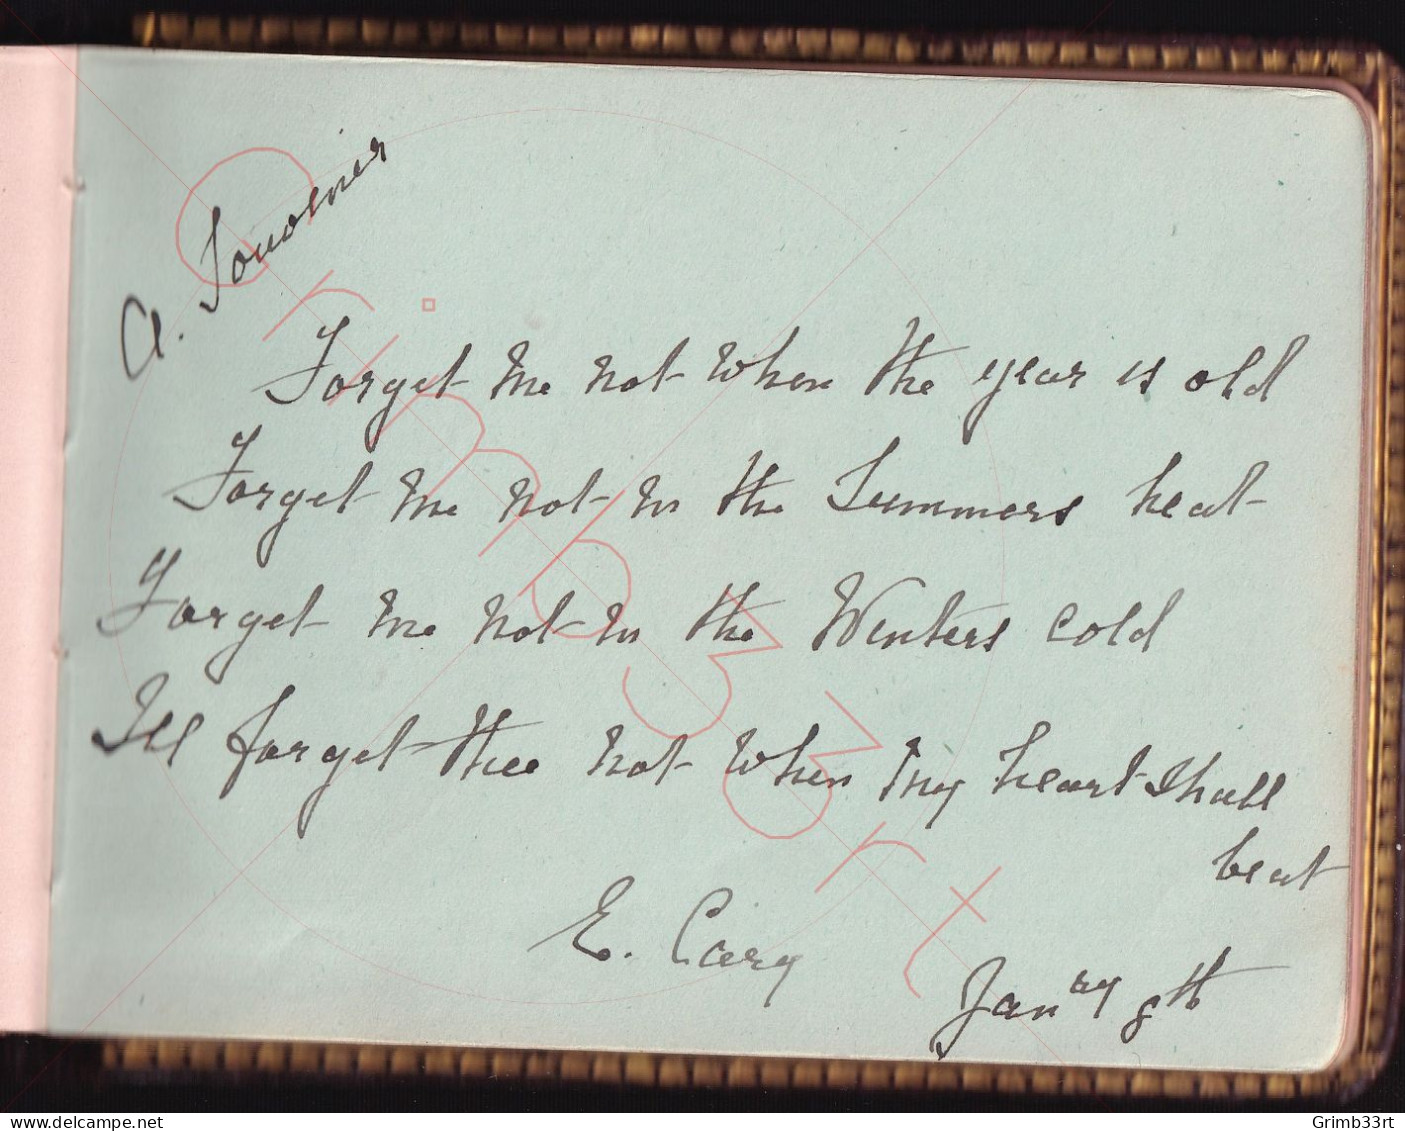 A. Souvenir
Forget me not when the year is old
Forget me not in the Summers heat
Forget me not in the Winters cold
Ill forget thee not when my heart shall
beat
E. Carg
Janry 8th
Grimb33rt
www.delcampe.net
Grimb33rt